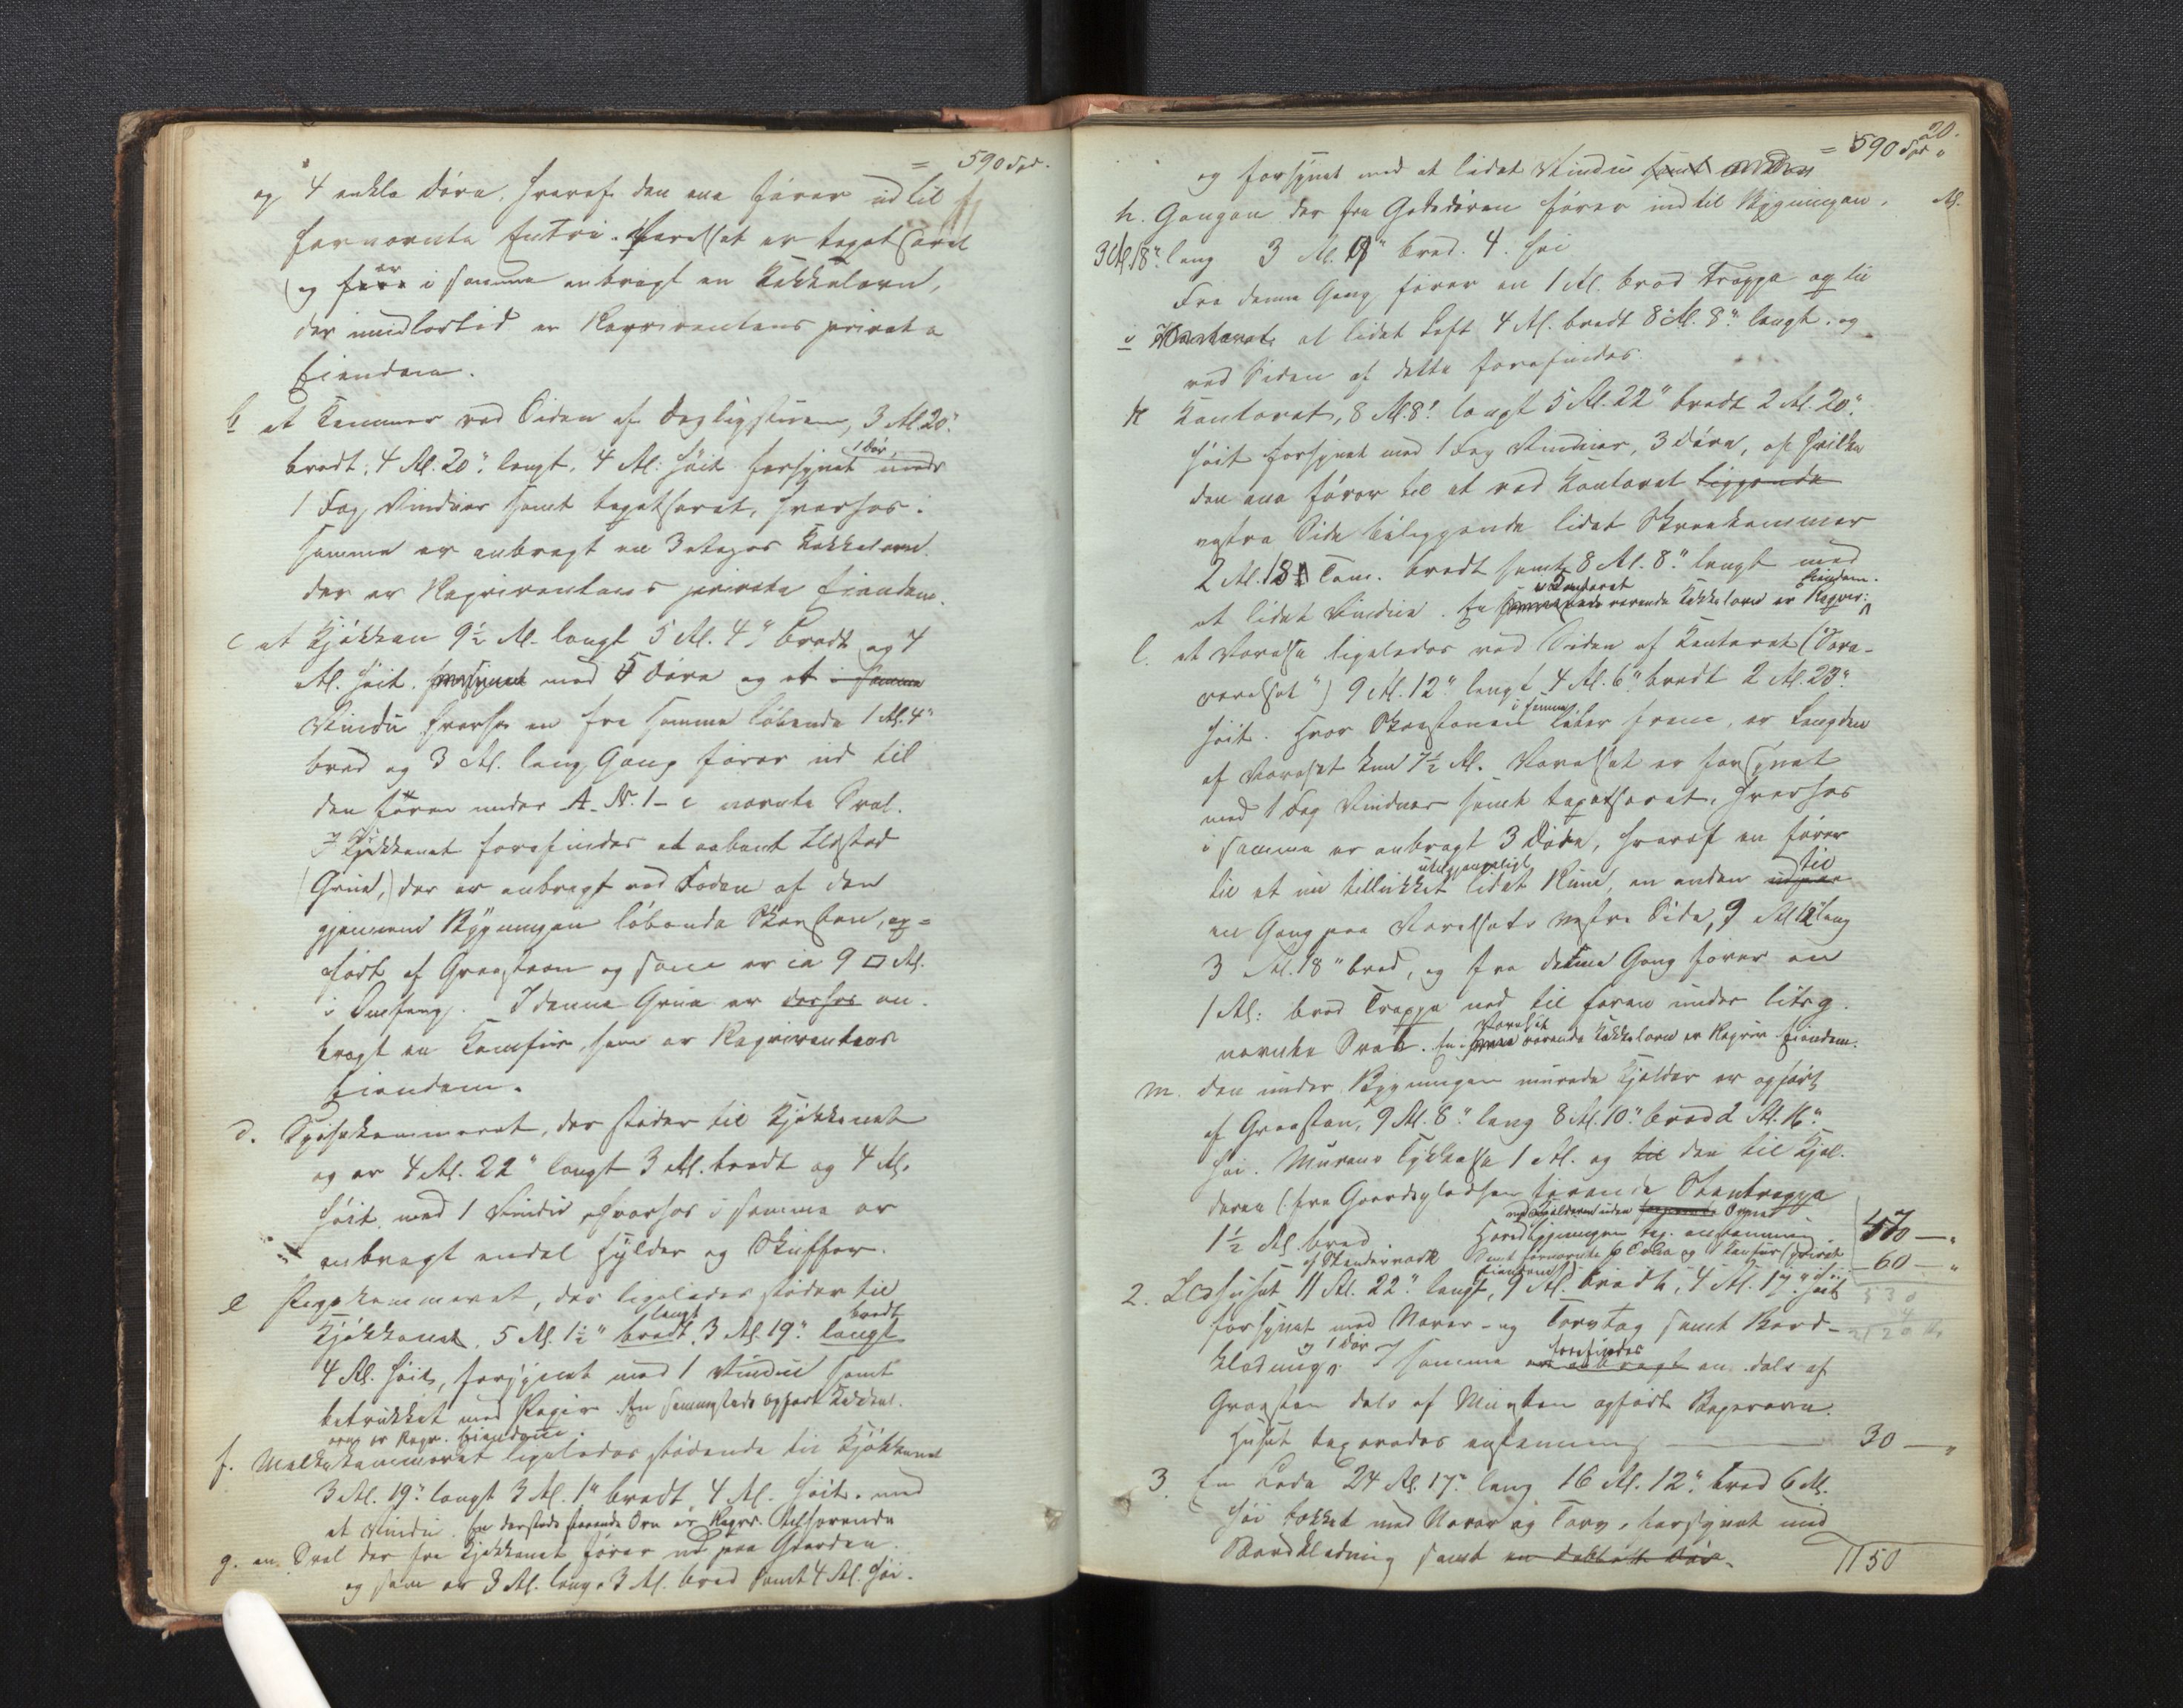 = 590 Spd.
og 4 enkle Döre, hvoraf den ene förer ud til
fornævnte Entre. Værelset er tapetseret
og er i samme anbragt en Kakkelovn,
der imidlertid er Reqvirentens private
Eiendom.
b et Kammer ved Siden af Dagligstuen, 3 Al. 20"
bredt, 4 Al. 20" langt, 4 Al. höit forsynet med 1 Dör
1 Fag Vinduer samt tapetseret, hvorhos i
samme er anbragt en 3 etages Kakkelovn
der er Reqvirentens private Eiendom.
c et Kjökken 9½ Al. langt 5 Al. 4" bredt og 4
Al. höit. forsynet med 5 Döre og et i samme
Vindu hvorhos en fra samme löbende 1 Al. 4"
bred og 3 Al. lang Gang förer ud til
den foran under A. N. 1 - c nævnte Sval.
I Kjökkenet forefindes et aabent Ildsted
(Grue,) der er anbragt ved Foden af den
gjennem Bygningen löbende Skorsten, op=
fört af Graasteen og som er ca 9 □ Al.
i Omfang. I denne Grue er derhos an-
bragt en Komfur, som er Reqvirentens
Eiendom.
d. Spisekammeret, der stöder til Kjökkenet
og er 4 Al. 22" langt 3 Al. bredt og 4 Al.
höit, med 1 Vindu, hvorhos i samme er
anbragt endel Hylder og Skuffer.
e Pigekammeret, der ligeledes stöder til
Kjökkenet, 5 Al. 1½" bredt langt 3 Al. 19" langt bredt
4 Al. höit, forsynet med 1 Vindue samt
betrukket med Papir. En sammesteds opfört Kakkel-
ovn er Reqv. Eiendom.
f. Melkekammeret ligeledes stödende til Kjökkenet
3 Al. 19" langt 3 Al. 1" bredt, 4 Al. höit. med
et Vindu. En dersteds staaende Ovn er Reqvr. tilhörende
g. en Sval der fra Kjökkenet förer ud paa Gaarden.
og som er 3 Al. lang, 3 Al. bred samt 4 Al. höi.
20.
= 590 Spd "
og forsynet med et lidet Vindue samt
h. Gangen der fra Gadedören förer ind til Bygningen.
3 Al. 18" lang 3 Al. 9" bred. 4. höi Al.
Fra denne Gang förer en 1 Al. bred Trappe op til
i et lidet Loft 4 Al. bredt 8 Al. 8" langt. og
ved Siden af dette forefindes.
k Kontoret, 8 Al. 8" langt 5 Al. 22" bredt 2 Al. 20"
höit forsynet med 1 Fag Vinduer, 3 Döre, af hvilke
den ene förer til et ved Kontoret liggende
vestre Side beliggende lidet Skraakammer
2 Al. 18 Tom. bredt samt 8 Al. 8" langt med
et lidet Vindue. En i Kontoret værende Kakkelovn er Reqvir: Eiendom.
l. et Værelse ligeledes ved Siden af Kontoret (Sove-
værelset") 9 Al. 12" langt 4 Al. 6" bredt 2 Al. 23"
höit. Hvor Skorstenen i samme löber frem, er Længden
af Værelset kun 7½ Al. Værelset er forsynet
med 1 Fag Vinduer samt tapetseret, hvorhos
i samme er anbragt 3 Döre, hvoraf en förer
til et nu tillukket utilgjængeligt lidet Rum, en anden ud paa til
en Gang paa Værelsets vestre Side, 9 Al 12" lang
3 Al. 18" bred, og fra denne Gang förer en
1 Al: bred Trappe ned til foran under litr g.
nævnte Sval. En i Værelset værende Kakkelovn er Reqvir. Eiendom.
m. den under Bygningen murede Kjelder er opfört
af Graasten, 9 Al. 8" lang 8 Al. 10" bred 2 Al. 16"
höi. Murens Tykkelse 1 Al. og til den til Kjel-
deren (fra Gaardspladsen) förende Stentrappe
1½ Al. bred. Hovedbygningen med Kjelderen uden Ovne tax. enstemmig 570 — "
Samt fornævnte Kakkelovne og 1 Komfur (privat Eiendom) 60 — "
2. Ildhuset af Stenderværk 11 Al. 22" langt, 9 Al. bredt, 4 Al. 17" höit
forsynet med Næver- og Torvtag samt Bord-
klædning og 1 Dör. I samme er anbragt forefindes en dels af
Graasten dels af Mursten opfört Bagerovn.
Huset taxeredes enstemmig — 30 — "
3. En Lade 24 Al. 17" lang 16 Al. 12" bred 6 Al.
höi tækket med Næver og Torv, forsynet med
Bordklædning samt en dobbelt Dör. 1150